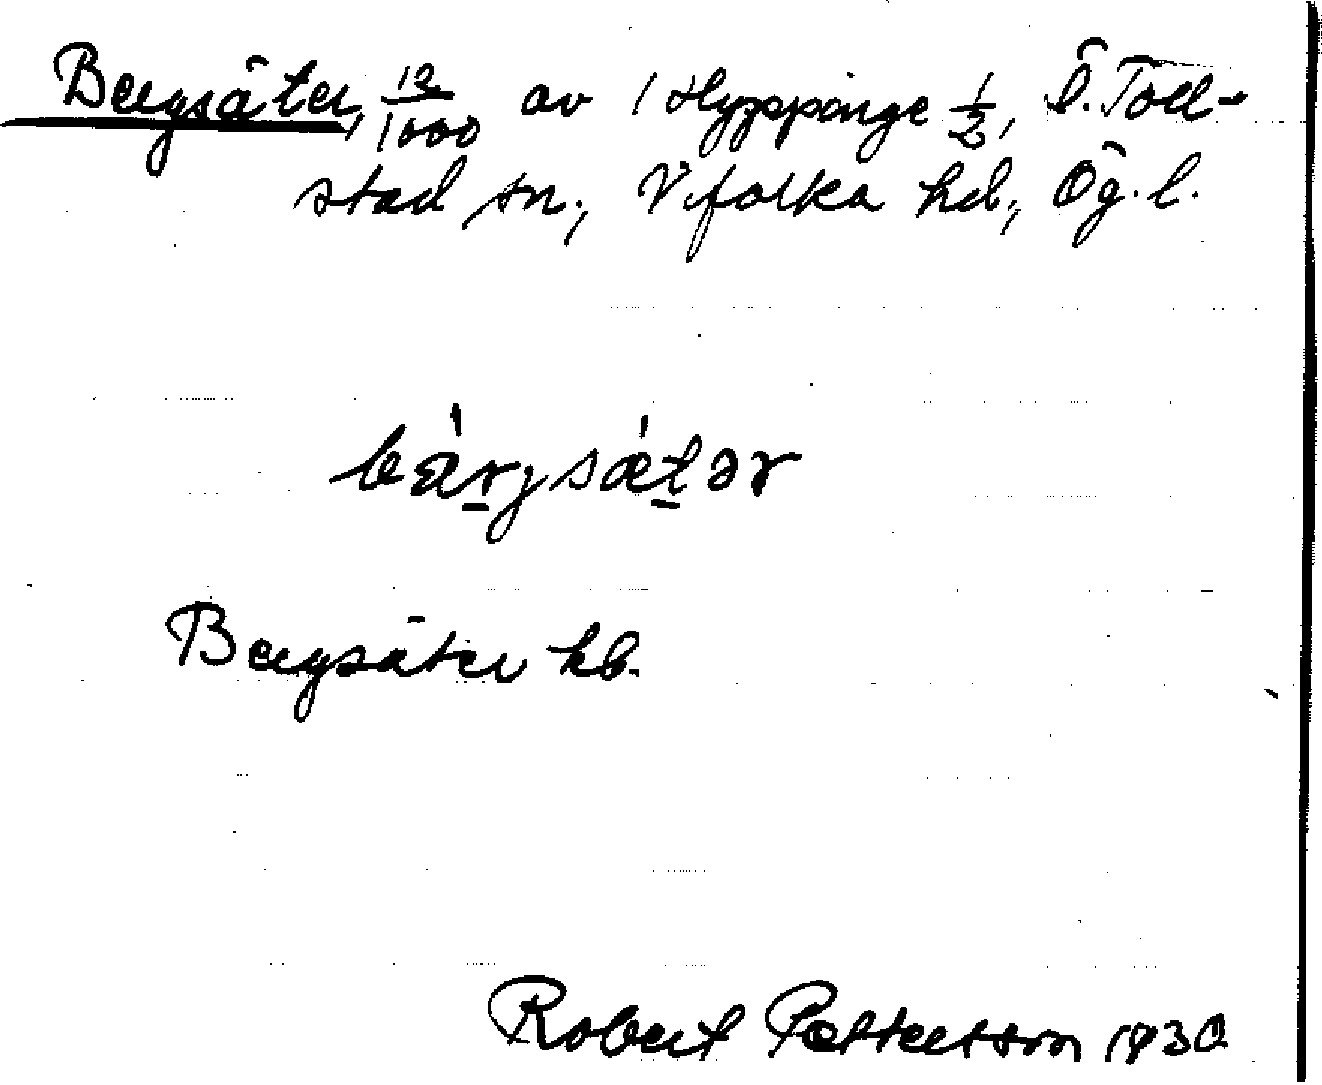 Bergsäter, 12/1000 av 1 Hyppinge 1/2, Ö. Toll-
stad sn., Vifolka hd., Ög. l.
bärjsætər
Bergsäter kb.
Robert Pettersson 1930